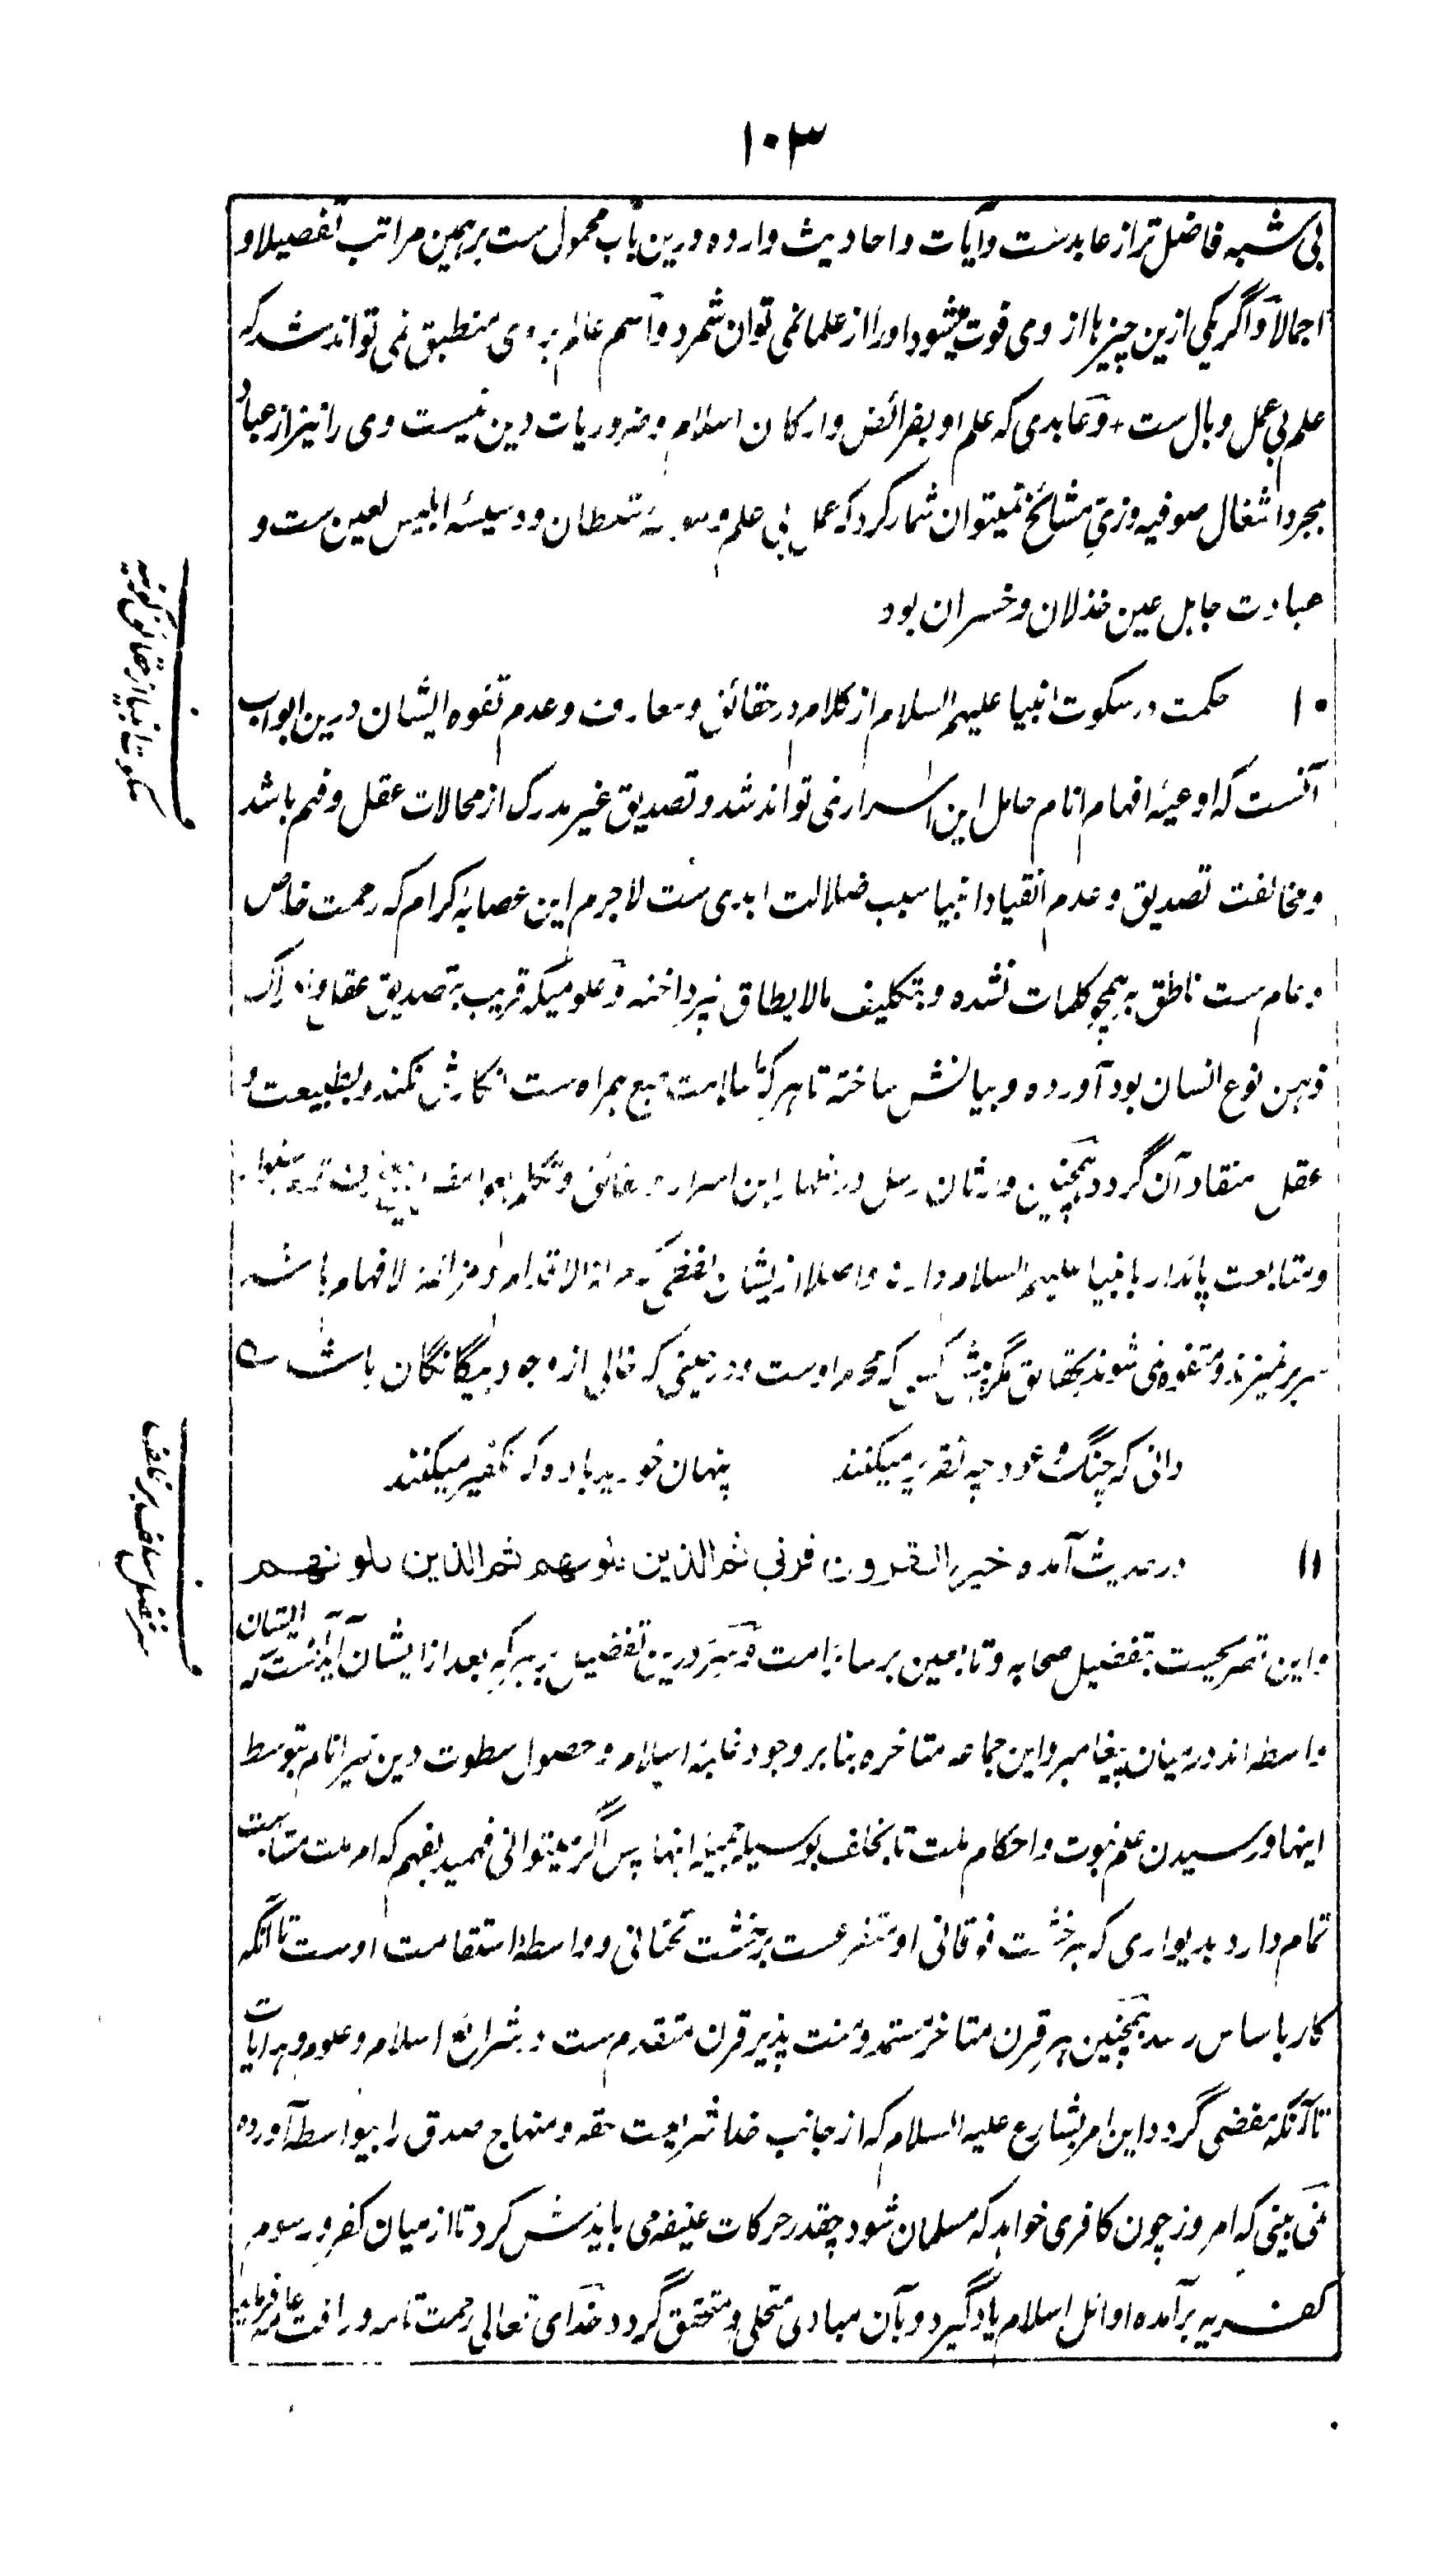 ۱۰۳
بی شبه فاضل تر از عابدست و آیات و احادیث وارده درین باب محمول ست بر همین مراتب تفصیلا و
اجمالا و اگر یکی ازین چیزها از وی فوت میشود او را از علما نمی توان شمرد و اسم عالم بر وی منطبق نمی تواند شد که
علم بی عمل وبال ست + و عابدی که علم او بفرائض و ارکان اسلام و ضروریات دین نیست وی را نیز از عباد
بمجرد اشغال صوفیه و زی مشائخ نمیتوان شمار کرد که عمل بی علم وسوسه شیطان و دسیسه ابلیس لعین ست و
عبادت جاهل عین خذلان و خسران بود
۱۰ حکمت در سکوت انبیا علیهم السلام از کلام در حقائق و معارف و عدم تفوه ایشان درین ابواب
آنست که اوعیه افهام انام حامل این اسرار نمی تواند شد و تصدیق غیر مدرک از محالات عقل و فهم باشد
و مخالفت تصدیق و عدم انقیاد انبیا سبب ضلالت ابدی ست لاجرم این عصابه کرام که رحمت خاص
و عام ست ناطق به همچو کلمات نشده و بتکلیف مالایطاق نپرداخته و علومیکه قریب به تصدیق عقل و ادراک
ذهن نوع انسان بود آورده و بیانش ساخته تا هر کرا سلامت طبع همراه ست انکارش نکند و بطبیعت و
عقل منقاد آن گردد همچنین وارثان رسل در اظهار این اسرار و حقائق و تکلم
و متابعت پائدار بانبیا علیهم السلام دارند و اصلا ازیشان لفظی که مزلة الاقدام و مزلقة الافهام باشد
سر بر نمیزند و متفوه نمی شوند بحقائق مگر پیش کسی که محرم اوست و در حینی که خالی از وجود بیگانگان باشد ۵
دانی که چنگ و عود چه تقریر میکنند پنهان خورید باده که تکفیر میکنند
۱۱ در حدیث آمده خیر القرون قرنی ثم الذین یلونهم ثم الذین یلونهم
و این تصریحیست بتفضیل صحابه و تابعین بر سائر امت و سر درین تفضیل بر هر که بعد از ایشان آید آنست که ایشان
واسطه اند در میان پیغامبر و این جماعه متاخره بنا بر وجود غلبه اسلام و حصول سطوت دین خیر انام بتوسط
اینها و رسیدن علم نبوت و احکام ملت تا بخلف بوسیله جمیله اینها پس اگر میتوانی فهمید بفهم که امر ملت مشابهت
تمام دارد بدیواری که هر خشت فوقانی او متفرع ست بر خشت تحتانی و واسطه استقامت اوست تا آنکه
کار باساس رسد همچنین هر قرن متاخر مستمد و منت پذیر قرن متقدم ست در شرائع اسلام و علوم و هدایات
تا آنکه مفضی گردد این امر بشارع علیه السلام که از جانب خدا شریعت حقه و منهاج صدق را بیواسطه آورده
نمی بینی که امروز چون کافری خواهد که مسلمان شود چقدر حرکات عنیفه می بایدش کرد تا از میان کفر و رسوم
کفریه برآمده اوائل اسلام یاد گیرد و بآن مبادی متحلی و متحقق گردد خدای تعالی رحمت تامه و رافت عامه فرماید
سکوت انبیا از حقائق گوئی
سر فضل سلف بر خلف